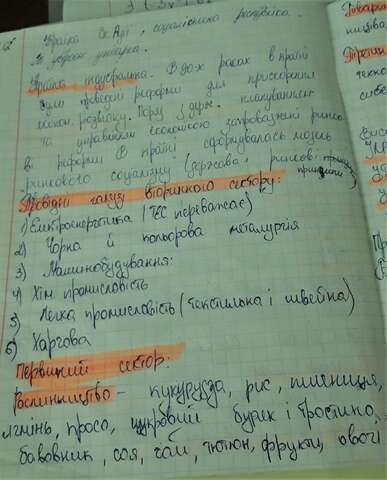 Країна ВсАрі, соціалістична республіка.
За устроєм унітарна.
Країна індустріальна. В 80-х роках в країні
були проведені реформи для прискорення
економ. розвитку. Поряд з держ. плануванням
та управлінням економікою запроваджені ринков
ві реформи. В країні сформувалась модель
ринкового соціалізму (державно, ринкові
принципи)
Провідні галузі вторинного сектору:
1) Електроенергетика (ТЕС переважає)
2) Чорна й кольорова металургія
3) Машинобудування:
4) Хім промисловість
5) Легка промисловість (текстильна і швейна)
6) Харчова
Первинний сектор:
Рослинництво – кукурудза, рис, пшениця,
ячмінь, просо, цукровий буряк і тростина,
бавовник, соя, чай, тютюн, фрукти, овочі